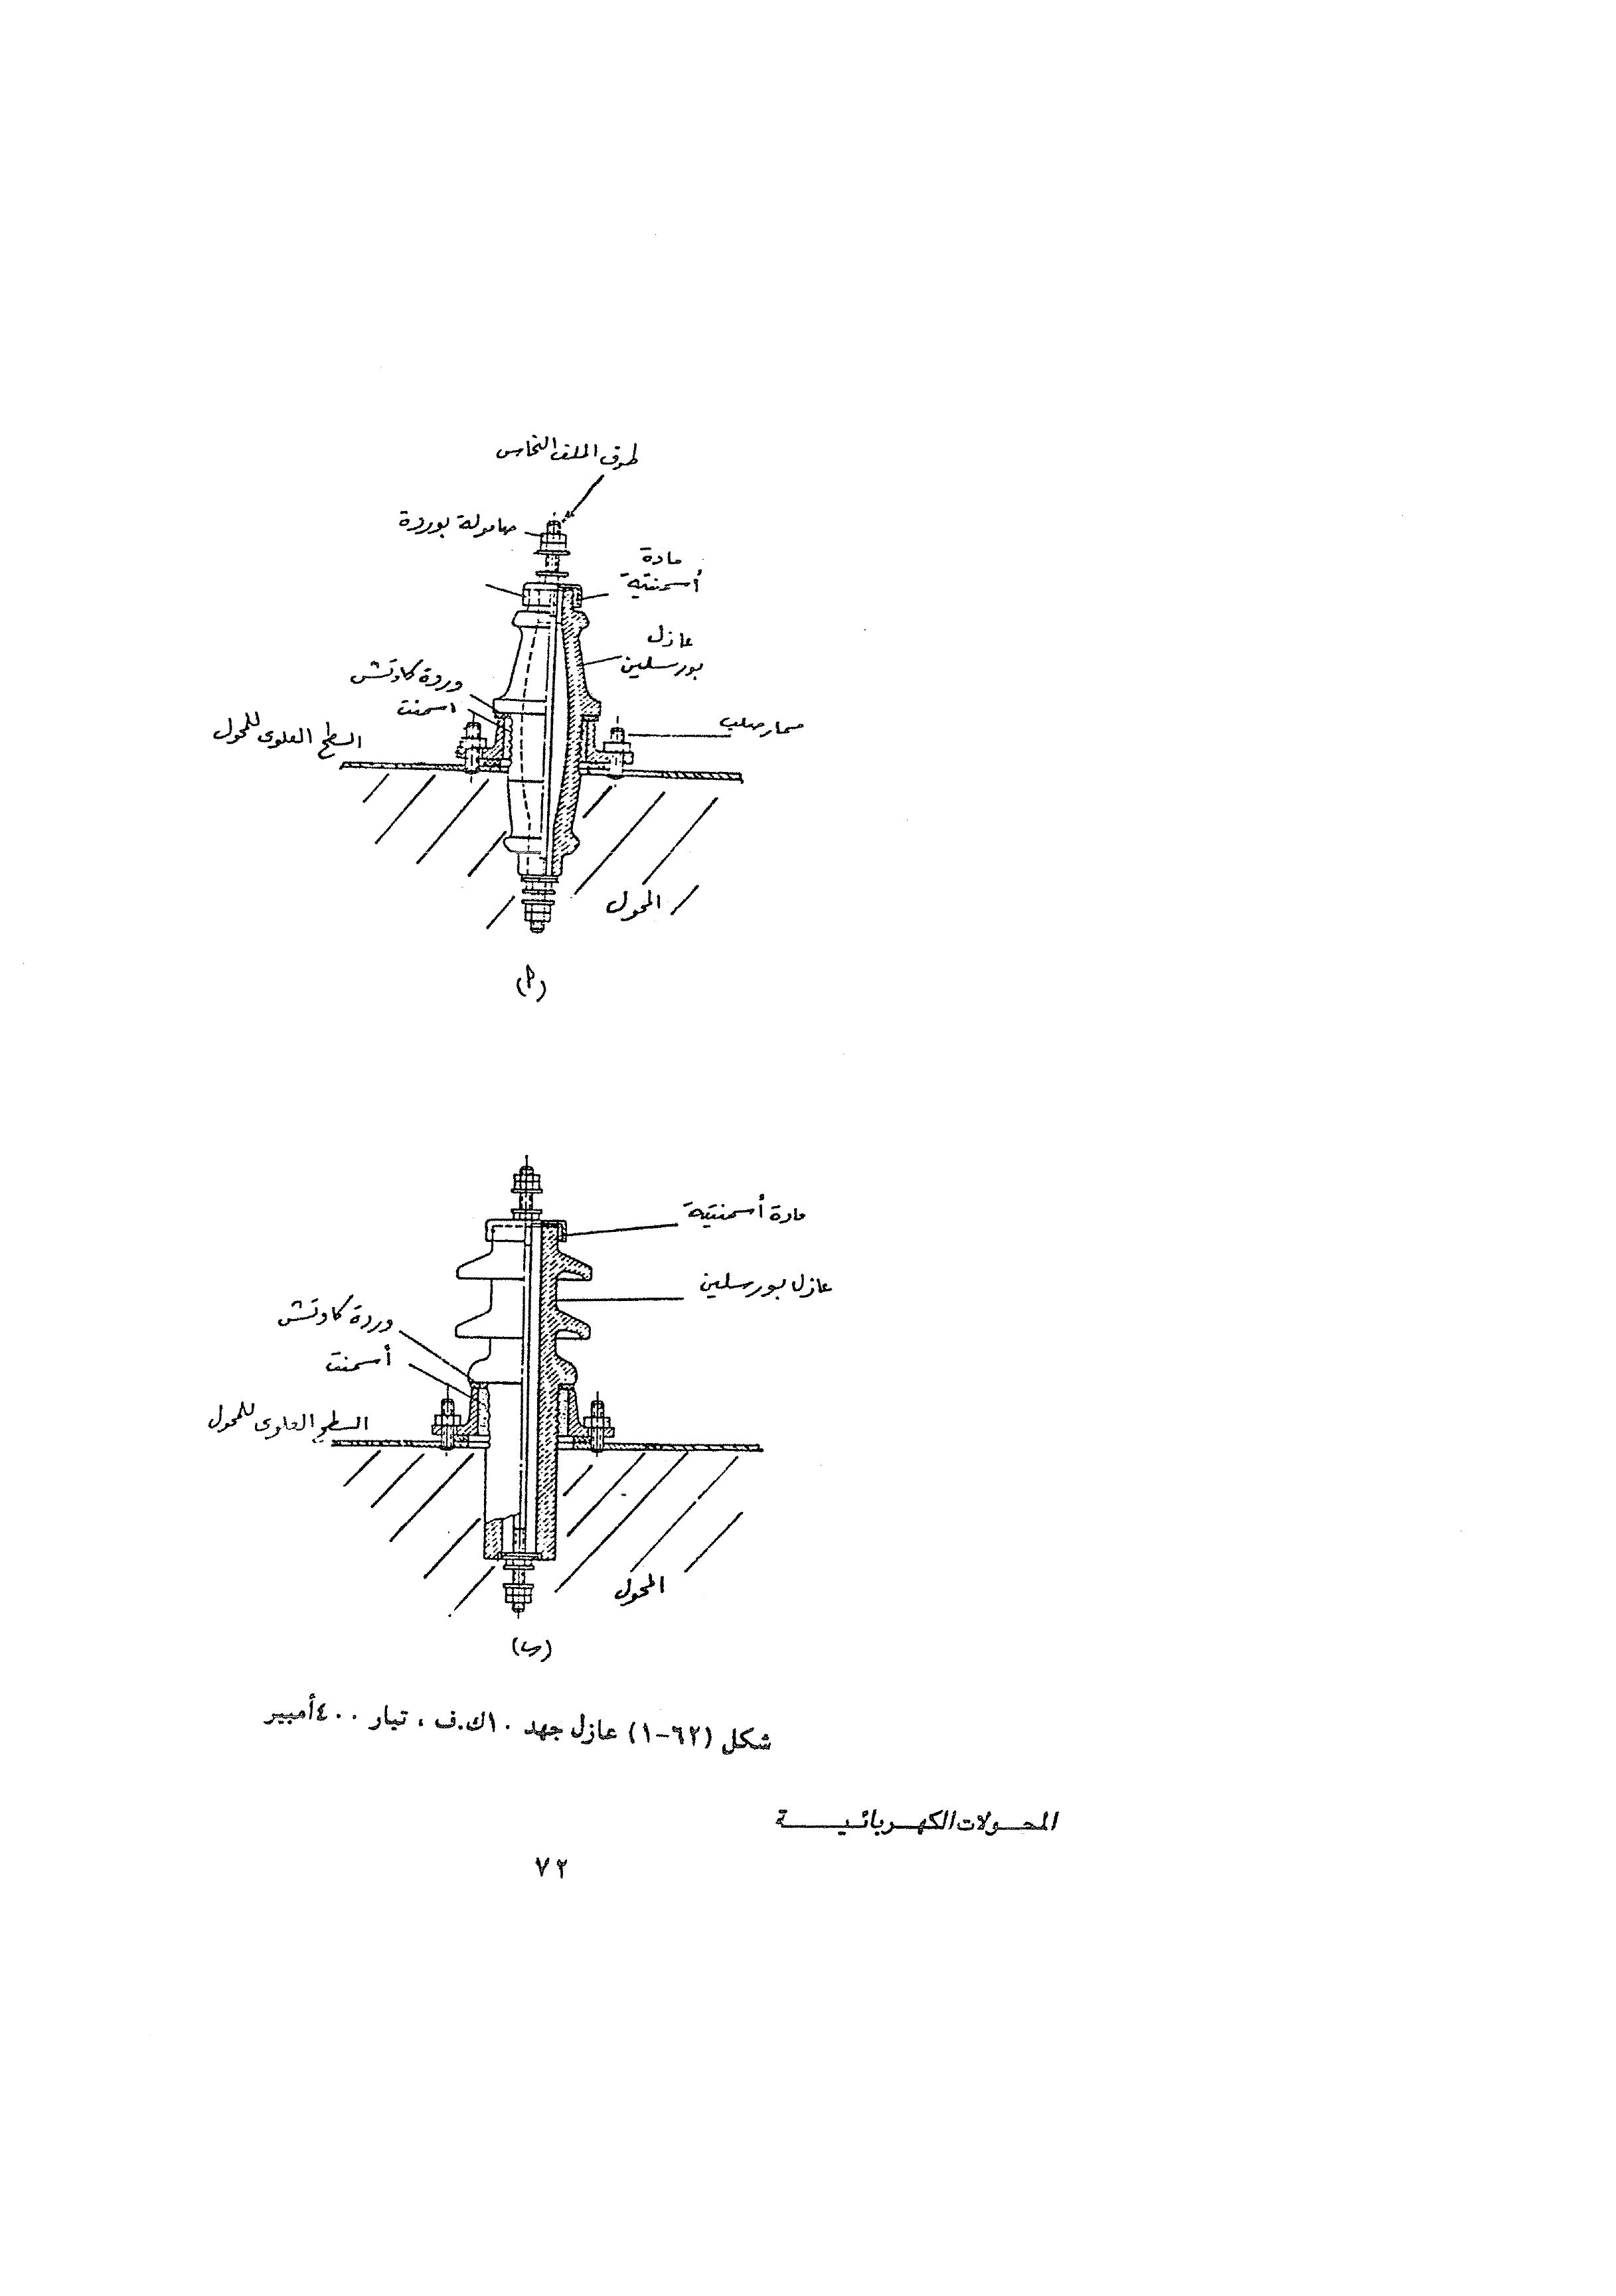 طرف الملف النحاس
صامولة بوردة
مادة
أسمنتية
عازل
بورسلين
وردة كاوتش
اسمنت
مسمار صلب
السطح العلوى للمحول
المحول
(أ)
مادة أسمنتية
عازل بورسلين
وردة كاوتش
أسمنت
السطح العلوى للمحول
المحول
(ب)
شكل (٦٢-١) عازل جهد ١٠ك.ف ، تيار ٤٠٠أمبير
المحولات الكهربائية
٧٢